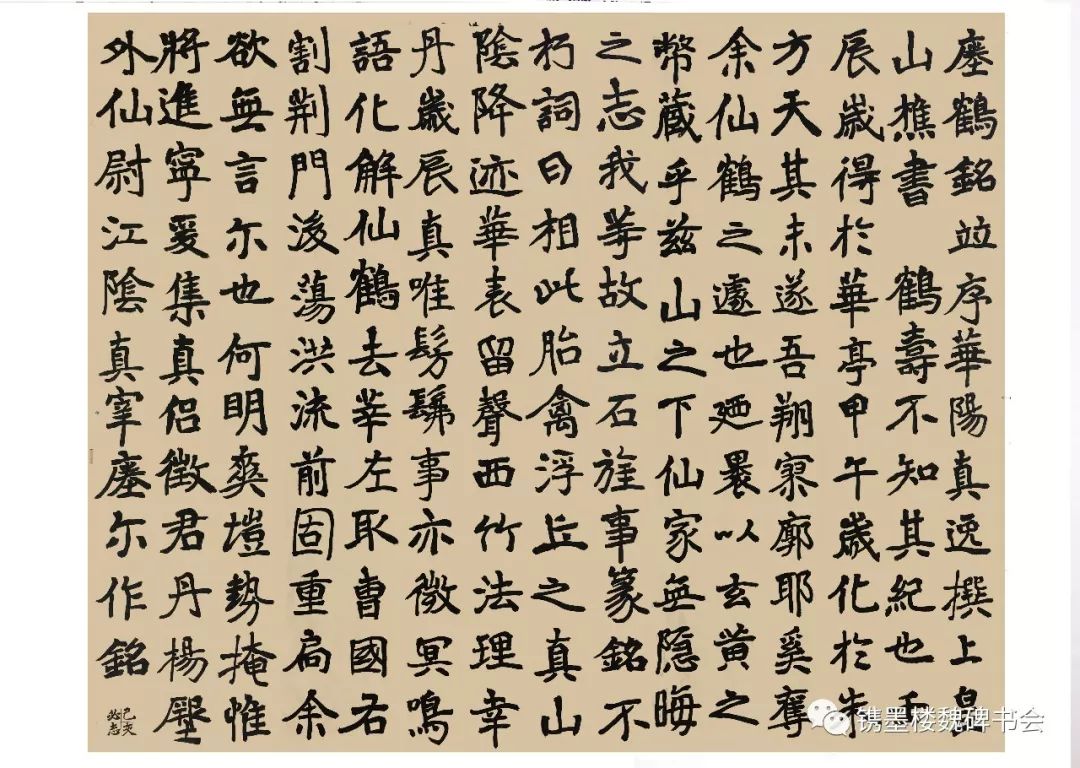 瘞鶴銘竝序華陽真逸撰上皇
山樵書 鶴壽不知其紀也壬
辰歲得於華亭甲午歲化於朱
方天其未遂吾翔寥廓耶奚奪
余仙鶴之遽也廼裹以玄黄之
幣藏乎兹山之下仙家無隱晦
之志我等故立石旌事篆銘不
朽詞曰相此胎禽浮丘之真山
陰降迹華表留聲西竹法理幸
丹歲辰真唯髣髴事亦微冥鳴
語化解仙鶴去莘左取曹國右
割荆門後蕩洪流前固重扃余
欲無言尔也何明爽塏勢掩惟
將進寧爰集真侣徵君丹楊
外仙尉江陰真宰瘞尔作銘
己亥
镌墨楼魏碑书会